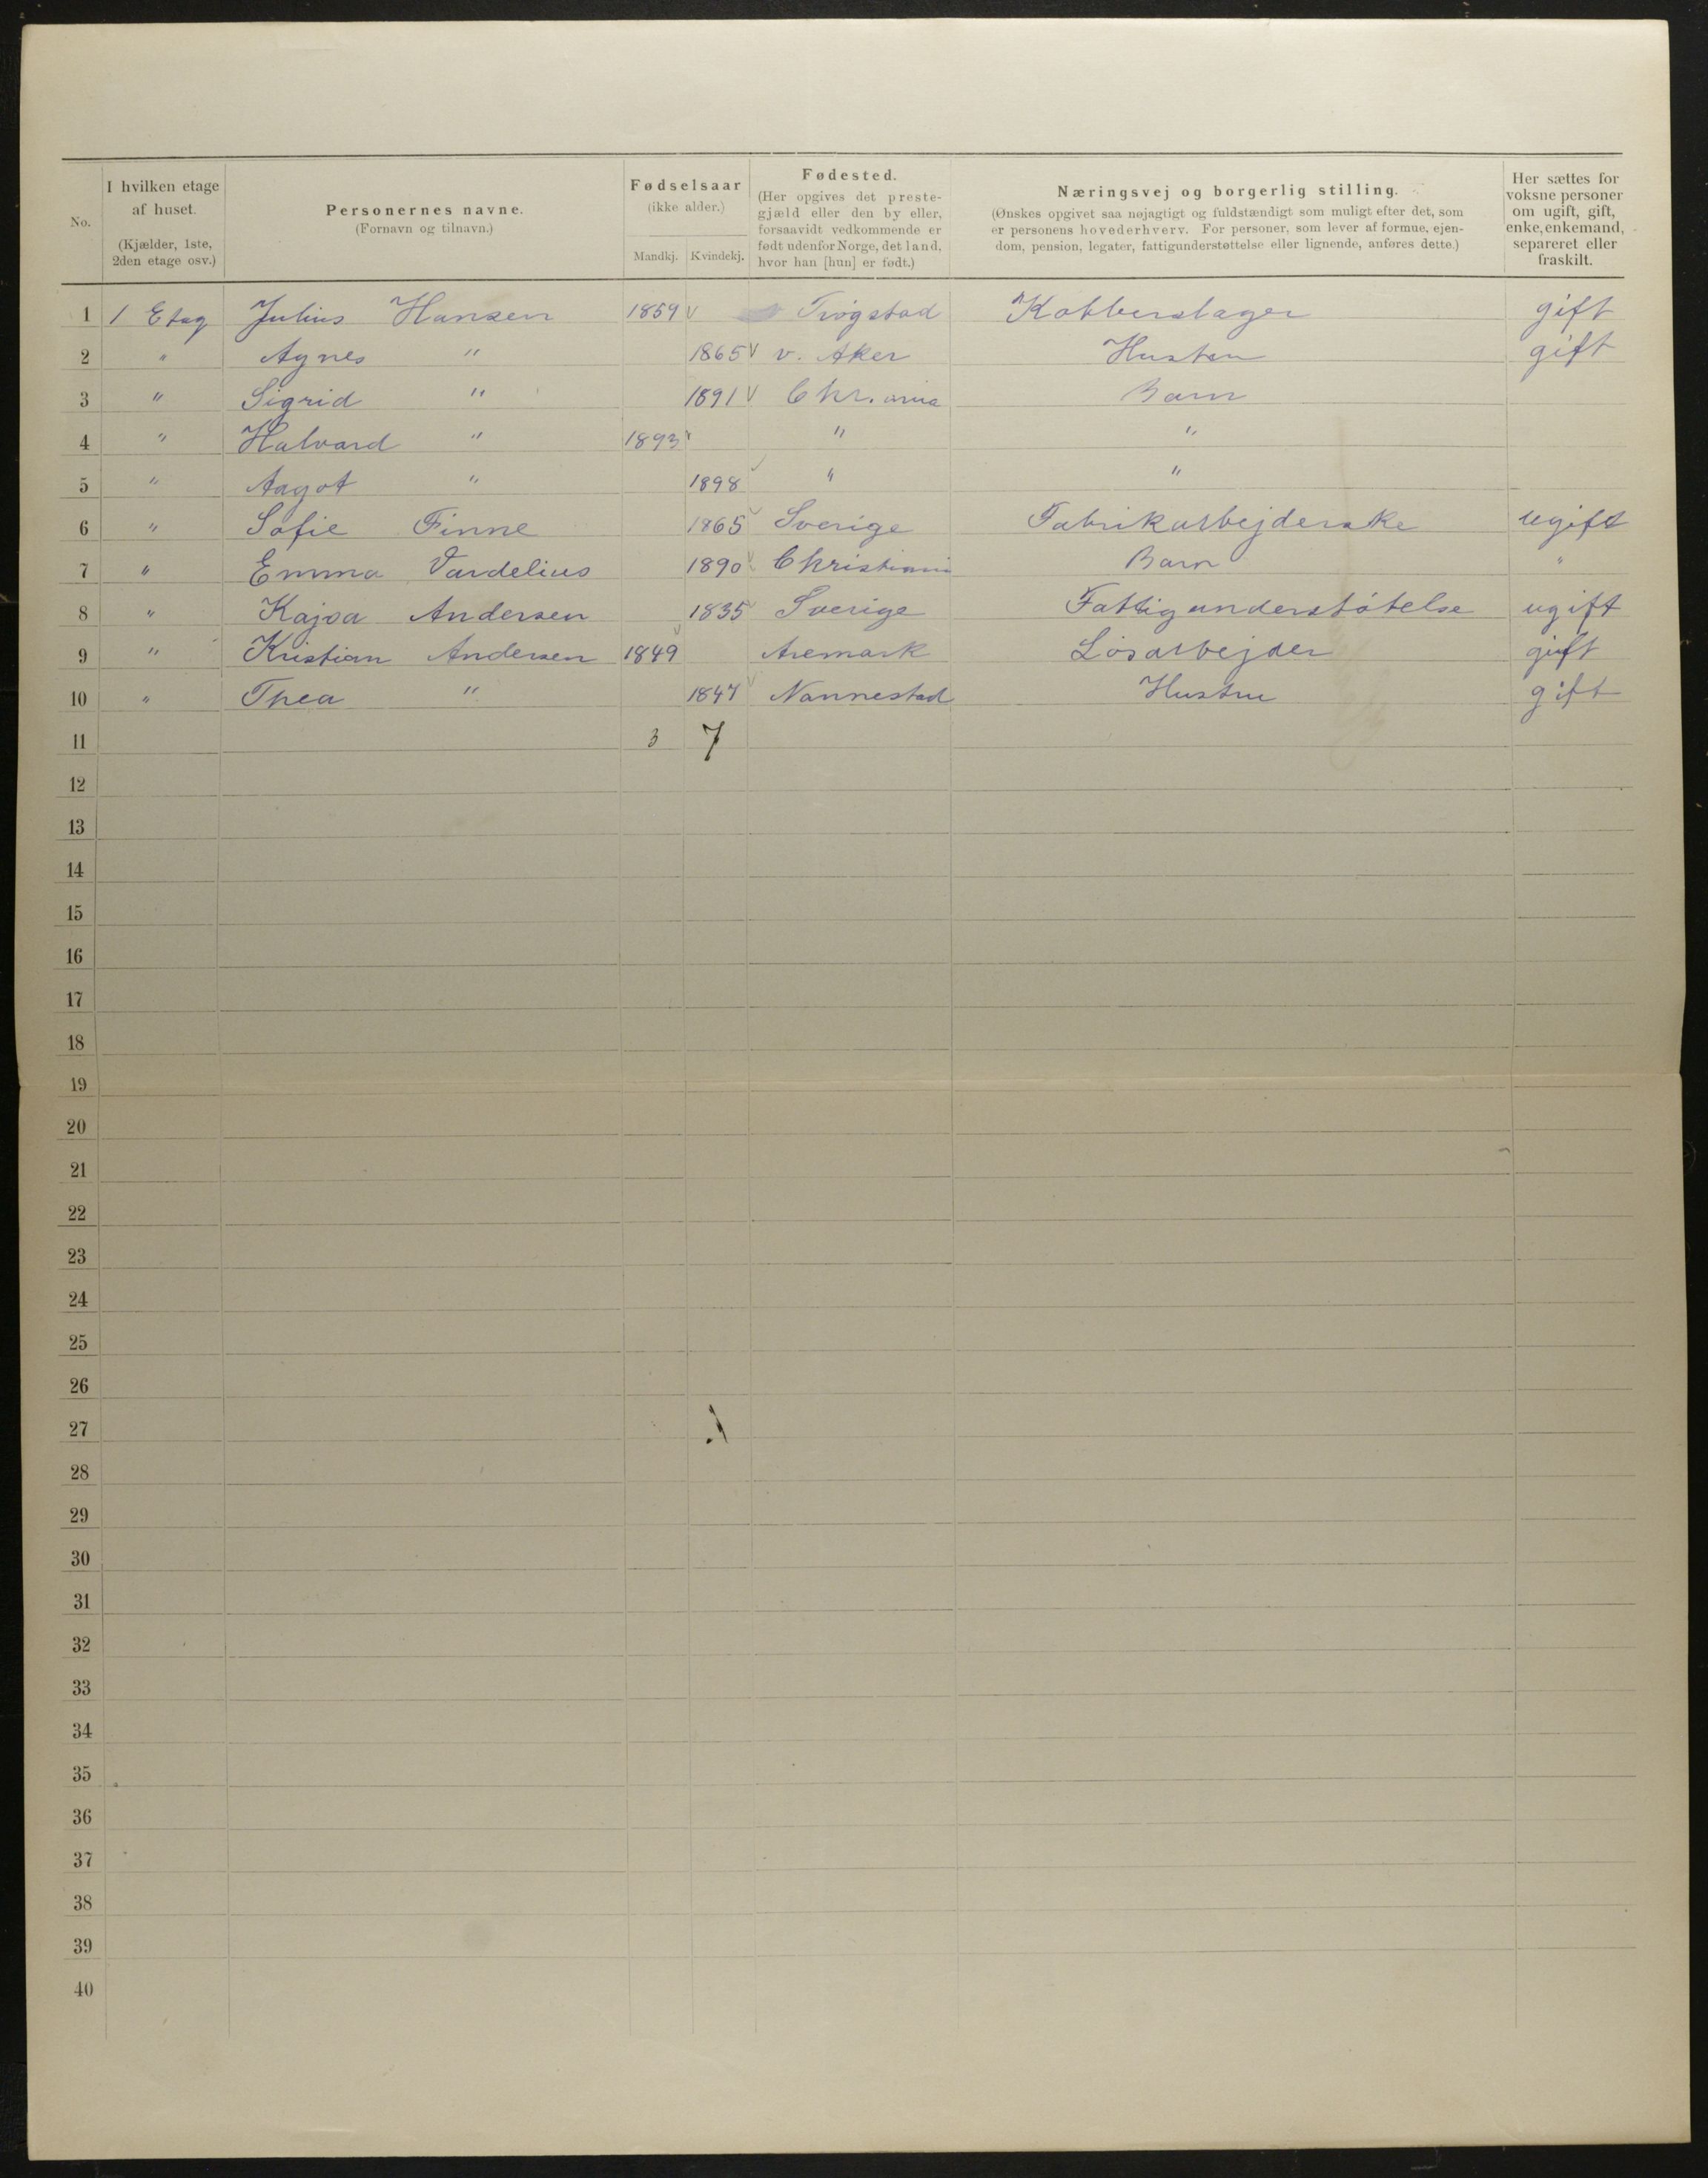 No.
I hvilken etage af huset. (Kjælder, 1ste, 2den etage osv.)
Personernes navne. (Fornavn og tilnavn.)
Fødselsaar (ikke alder.) Mandkj. Kvindekj.
Fødested. (Her opgives det prestegjæld eller den by eller, forsaavidt vedkommende er født udenfor Norge, det land, hvor han [hun] er født.)
Næringsvej og borgerlig stilling. (Ønskes opgivet saa nøjagtigt og fuldstændigt som muligt efter det, som er personens hovederhverv. For personer, som lever af formue, ejendom, pension, legater, fattigunderstøttelse eller lignende, anføres dette.)
Her sættes for voksne personer om ugift, gift, enke, enkemand, separeret eller fraskilt.
1 1 Etag Julius Hansen 1859 Trøgstad Kobberslager gift
2 " Agnes " 1865 v. Aker Hustru gift
3 " Sigrid " 1891 Chr.ania Barn
4 " Halvard " 1893 " "
5 " Aagot " 1898 " "
6 " Sofie Finne 1865 Sverige Fabrikarbejderske ugift
7 " Emma Vardelius 1890 Christiania Barn "
8 " Kajsa Andersen 1835 Sverige Fattigunderstøtelse ugift
9 " Kristian Andersen 1849 Aremark Løsarbejder gift
10 " Thea " 1847 Nannestad Hustru gift
11 3 7
12
13
14
15
16
17
18
19
20
21
22
23
24
25
26
27
28
29
30
31
32
33
34
35
36
37
38
39
40